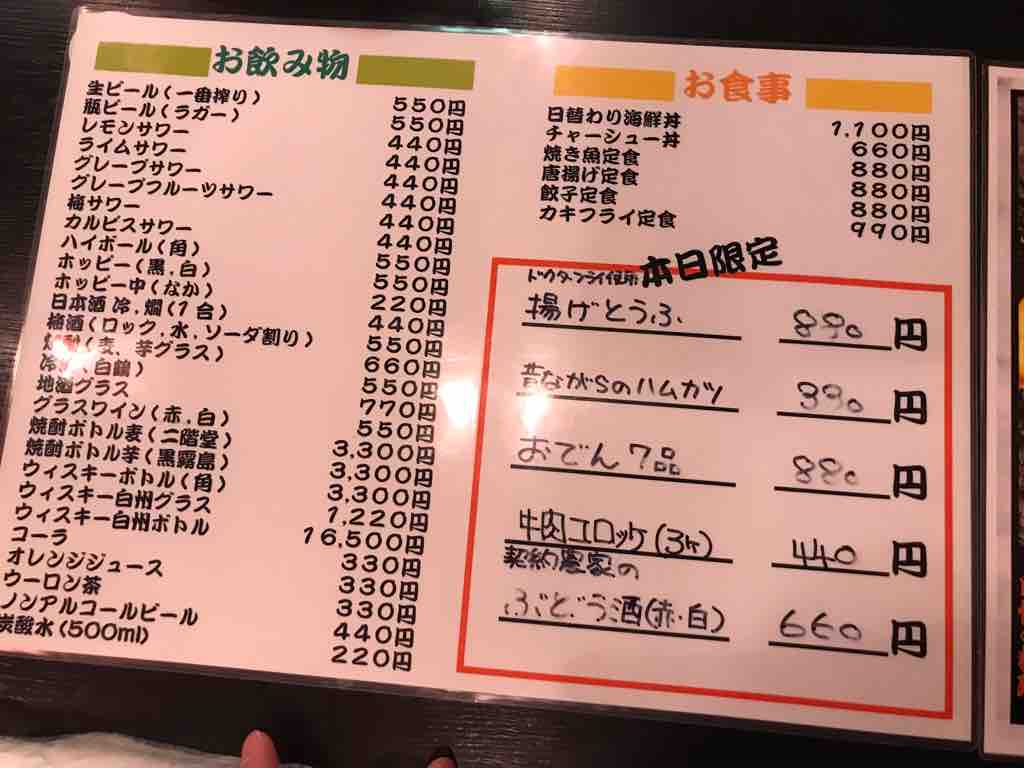 お飲み物
生ビール(一番搾り) 550円
瓶ビール(ラガー) 550円
レモンサワー 440円
ライムサワー 440円
グレープサワー 440円
グレープフルーツサワー 440円
梅サワー 440円
カルピスサワー 440円
ハイボール(角) 550円
ホッピー(黒,白) 550円
ホッピー中(なか) 220円
日本酒 冷,燗(1合) 440円
梅酒(ロック,水,ソーダ割り) 550円
焼酎(麦、芋グラス) 660円
冷酒(白鶴) 550円
地酒グラス 770円
グラスワイン(赤,白) 550円
焼酎ボトル麦(二階堂) 3,300円
焼酎ボトル芋(黒霧島) 3,300円
ウィスキーボトル(角) 3,300円
ウィスキー白州グラス 1,220円
ウィスキー白州ボトル 16,500円
コーラ 330円
オレンジジュース 330円
ウーロン茶 330円
ノンアルコールビール 440円
炭酸水(500ml) 220円
お食事
日替わり海鮮丼 1,100円
チャーシュー丼 660円
焼き魚定食 880円
唐揚げ定食 880円
餃子定食 880円
カキフライ定食 990円
本日限定
揚げとうふ 890円
昔ながらのハムカツ 390円
おでん7品 880円
牛肉コロッケ(3ヶ) 440円
契約農家の
ぶどう酒(赤・白) 660円